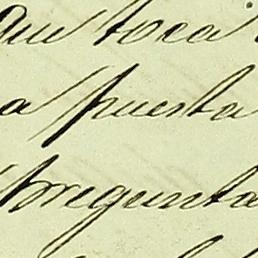 que toca
a puesta
pregunta